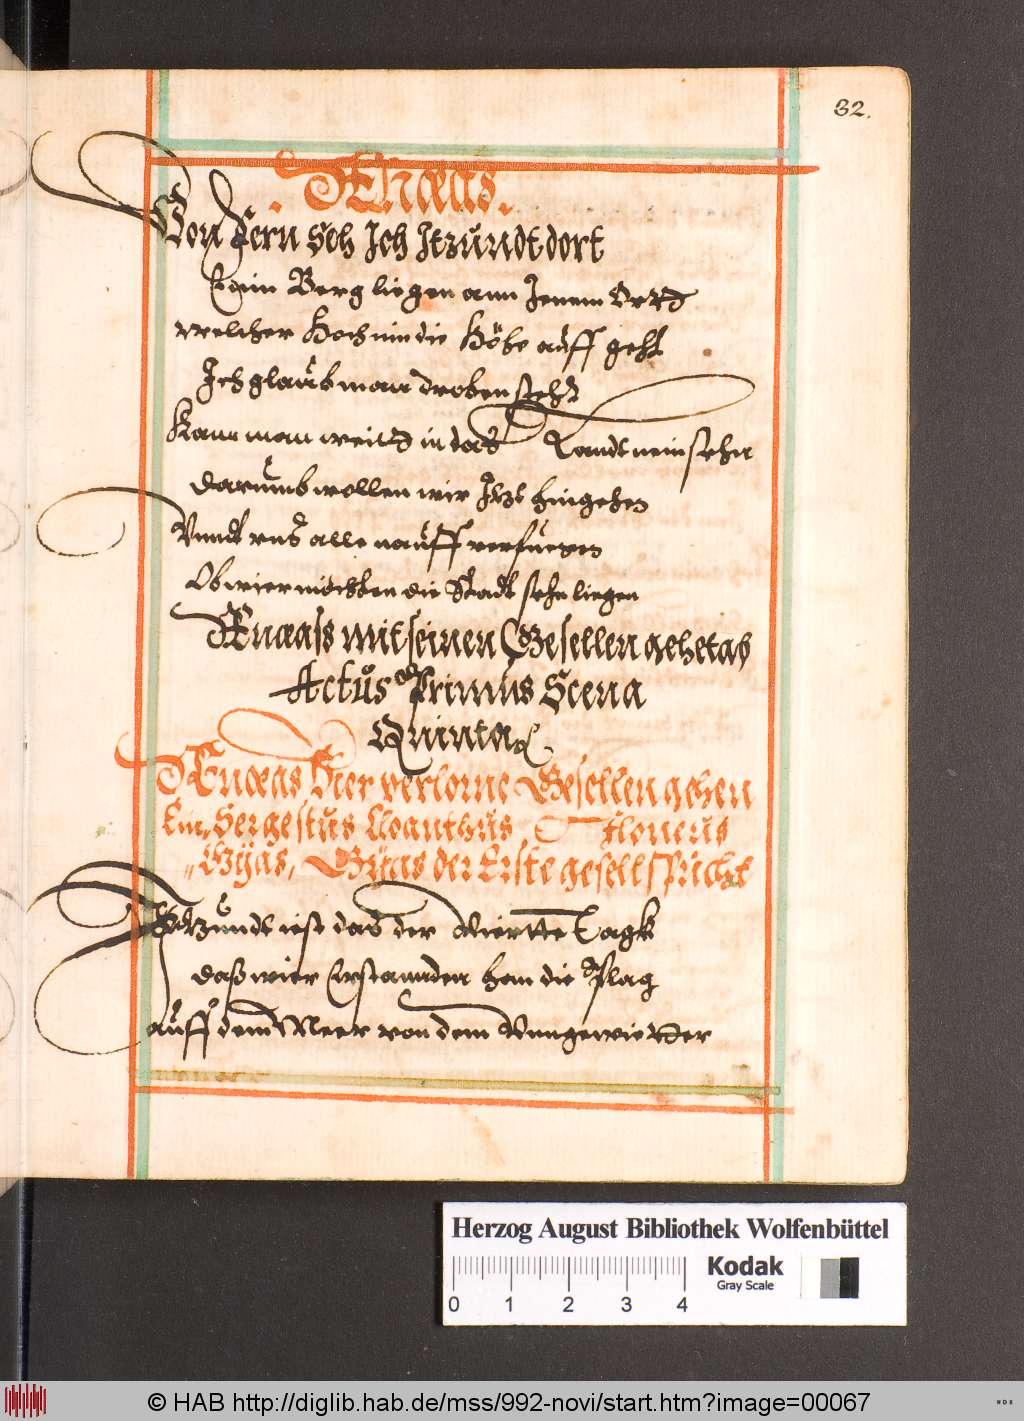 32.
. Æneas.
Von Fern Seh Ich Itzundt dort
Ein Berg liegen ann Jenem Ortt
welcher Hoch nin die Höhe auff geht
Ich glaub man droben steht
Kann man weitt in das Landt nein sehn
darumb wollen wir Itzt hingehen
Vnndt vns alle nauff verfuegen
Ob wier möchten die Stadt sehn liegen
Æneass mit seinen Gesellen gehet ab
Actus Primus Scena
Quinta
Æneas vier verlorne Gesellen gehen
Ein, Sergestus Cloanthus, Ilonerus
Gÿas, Gÿas der Erste gesell spricht
Itzundt ist das der Viertte Tagk
daß wier Erstannden han die Plag
auff dem Meer von dem Vnngewietter
Herzog August Bibliothek Wolfenbüttel
Kodak
Gray Scale
0 1 2 3 4
© HAB http://diglib.hab.de/mss/992-novi/start.htm?image=00067